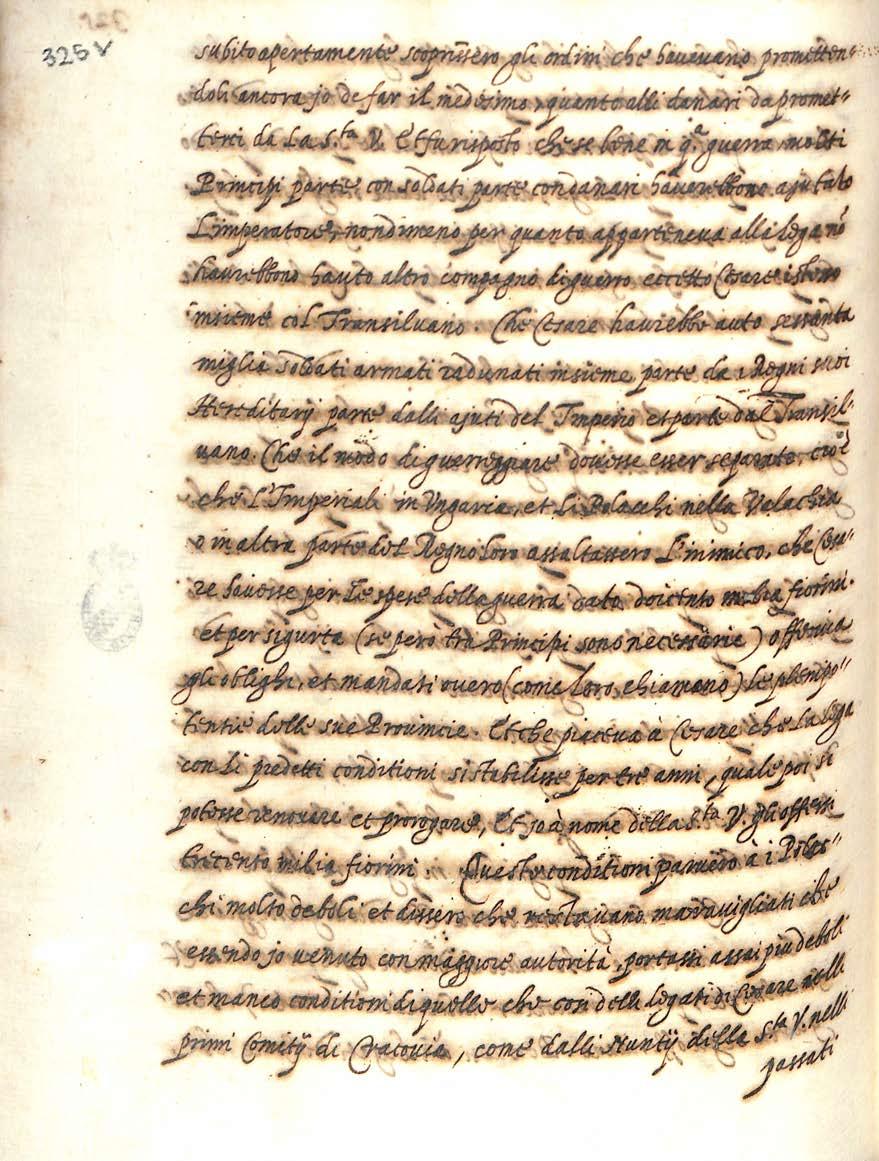 325 v
subito apertamente scoprissero gli ordini che havevano promitten=
doli ancora jo de far il medesimo, quanto alli danari da promet=
terci da La S.ta V. Et fu risposto che se bene in q.a guerra molti
Principi parte con soldati parte con danari haverebbono ajutato
L'imperatore, nondimeno per quanto apparteneva alli lega nõ
haurebbono hauto altro compagno di guerra eccetto Cesare istesso
insieme col Transiluano. Che Cesare haurebbe auto sessanta
miglia soldati armati radunati insieme parte da i Regni suoi
Hereditarij parte dalli ajuti del Imperio et parte dal Transil=
uano. Che il modo di guerreggiare dovesse esser separato, cioè
che L'Imperiali in Ungaria, et Li Polacchi nella Valachia
o in altra parte del Regno loro assaltassero L'inimico, che Cesa=
re havesse per le spese della guerra dato doicento milia fiorini.
et per sigurta (se però tra Principi sono necessarie) offeriva
gli oblighi, et mandati overo (come loro chiamano) le plenipo=
tentie delle sue Provincie. Et che piaceva à Cesare che La lega
con Li predetti conditioni si stabilisse per tre anni, quale poi si
potesse renovare et prorogare, Et jo à nome della S.ta V. gli offersi
trecento milia fiorini. Queste conditioni parvero à i Polac=
chi molto deboli et dissero che restavano maravigliati che
essendo jo venuto con maggiore autorità, portassi assai piu deboli
et manco conditioni di quelle che con delli legati di Cesare nelli
primi Comitij di Cracovia, come dalli Nuntij della S.ta V. nelli
passati